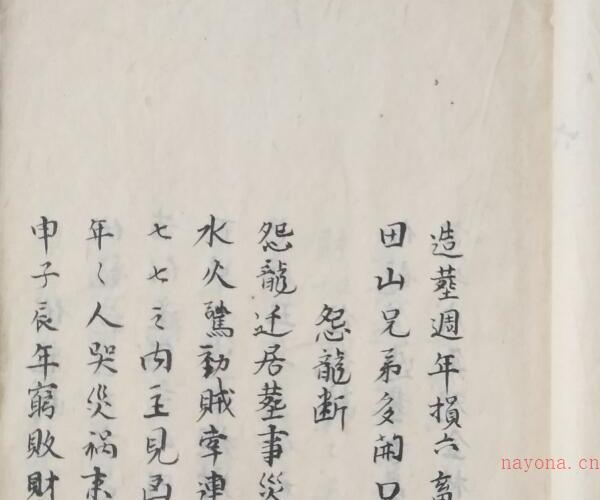 造塟週年損六畜
田山兄弟多鬧口
怨龍断
怨龍迁居塟事災
水火驚動賊牽連
七七之内主見凶
年〻人哭災禍来
申子辰年窮敗財
nayona.cn